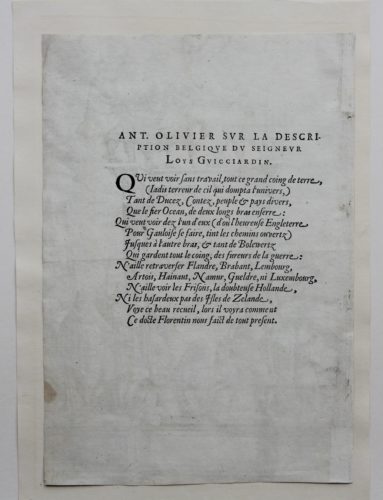 ANT. OLIVIER SVR LA DESCRI-
PTION BELGIQVE DV SEIGNEVR
LOYS GVICCIARDIN.
QVi veut voir sans travail, tout ce grand coing de terre,
(Iadis terreur de cil qui dompta l'univers,)
Tant de Ducez, Contez, peuple & pays divers,
Que le fier Ocean, de deux longs bras enserre:
Qui veut voir dez l'un d'eux (d'où l'heureuse Engleterre
Pour Gauloise se faire, tint les chemins ouvertz)
Iusques à l'autre bras, & tant de Bolevertz
Qui gardent tout le coing, des fureurs de la guerre:
N'aille retraverser Flandre, Brabant, Lembourg,
Artois, Hainaut, Namur, Gueldre, ni Luxembourg,
N'aille voir les Frisons, la doubteuse Hollande,
Ni les hasardeux pas des Isles de Zelande,
Voye ce beau recueil, lors il voyra comment
Ce docte Florentin nous faict de tout present.